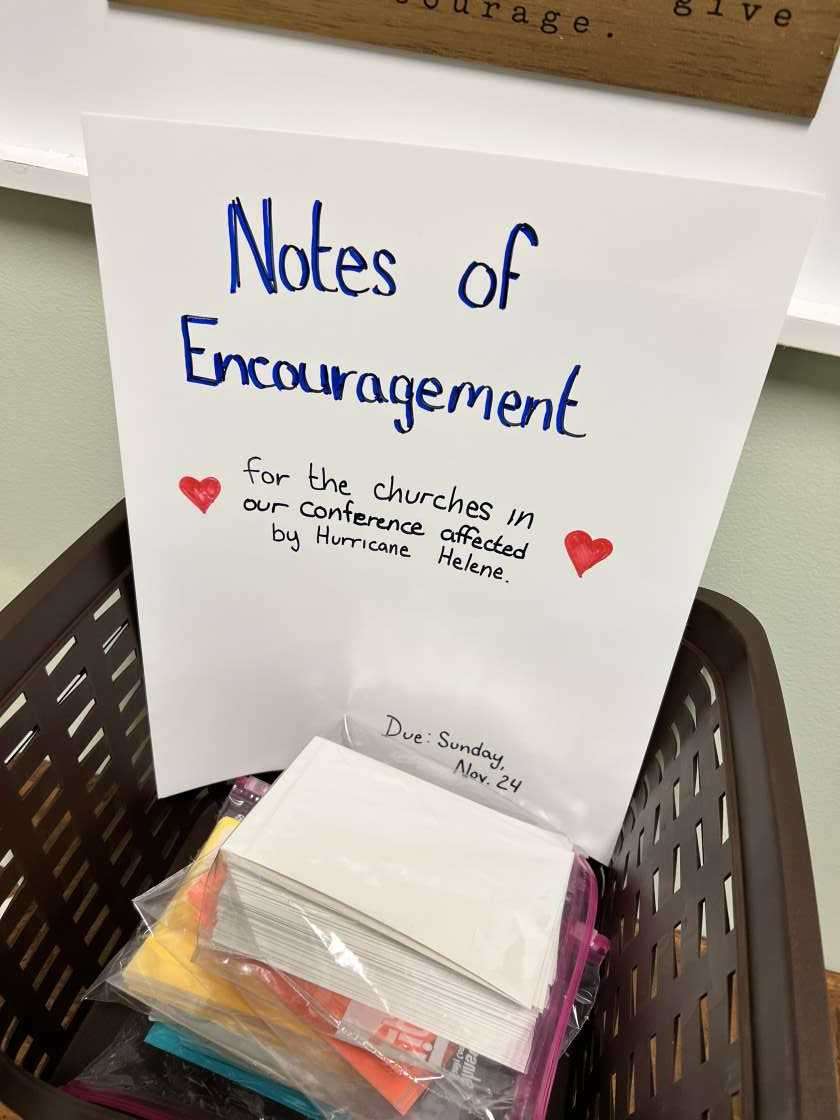 give
courage.
Notes of
Encouragement
for the churches in
our Conference affected
by Hurricane Helene.
Due: Sunday,
Nov. 24